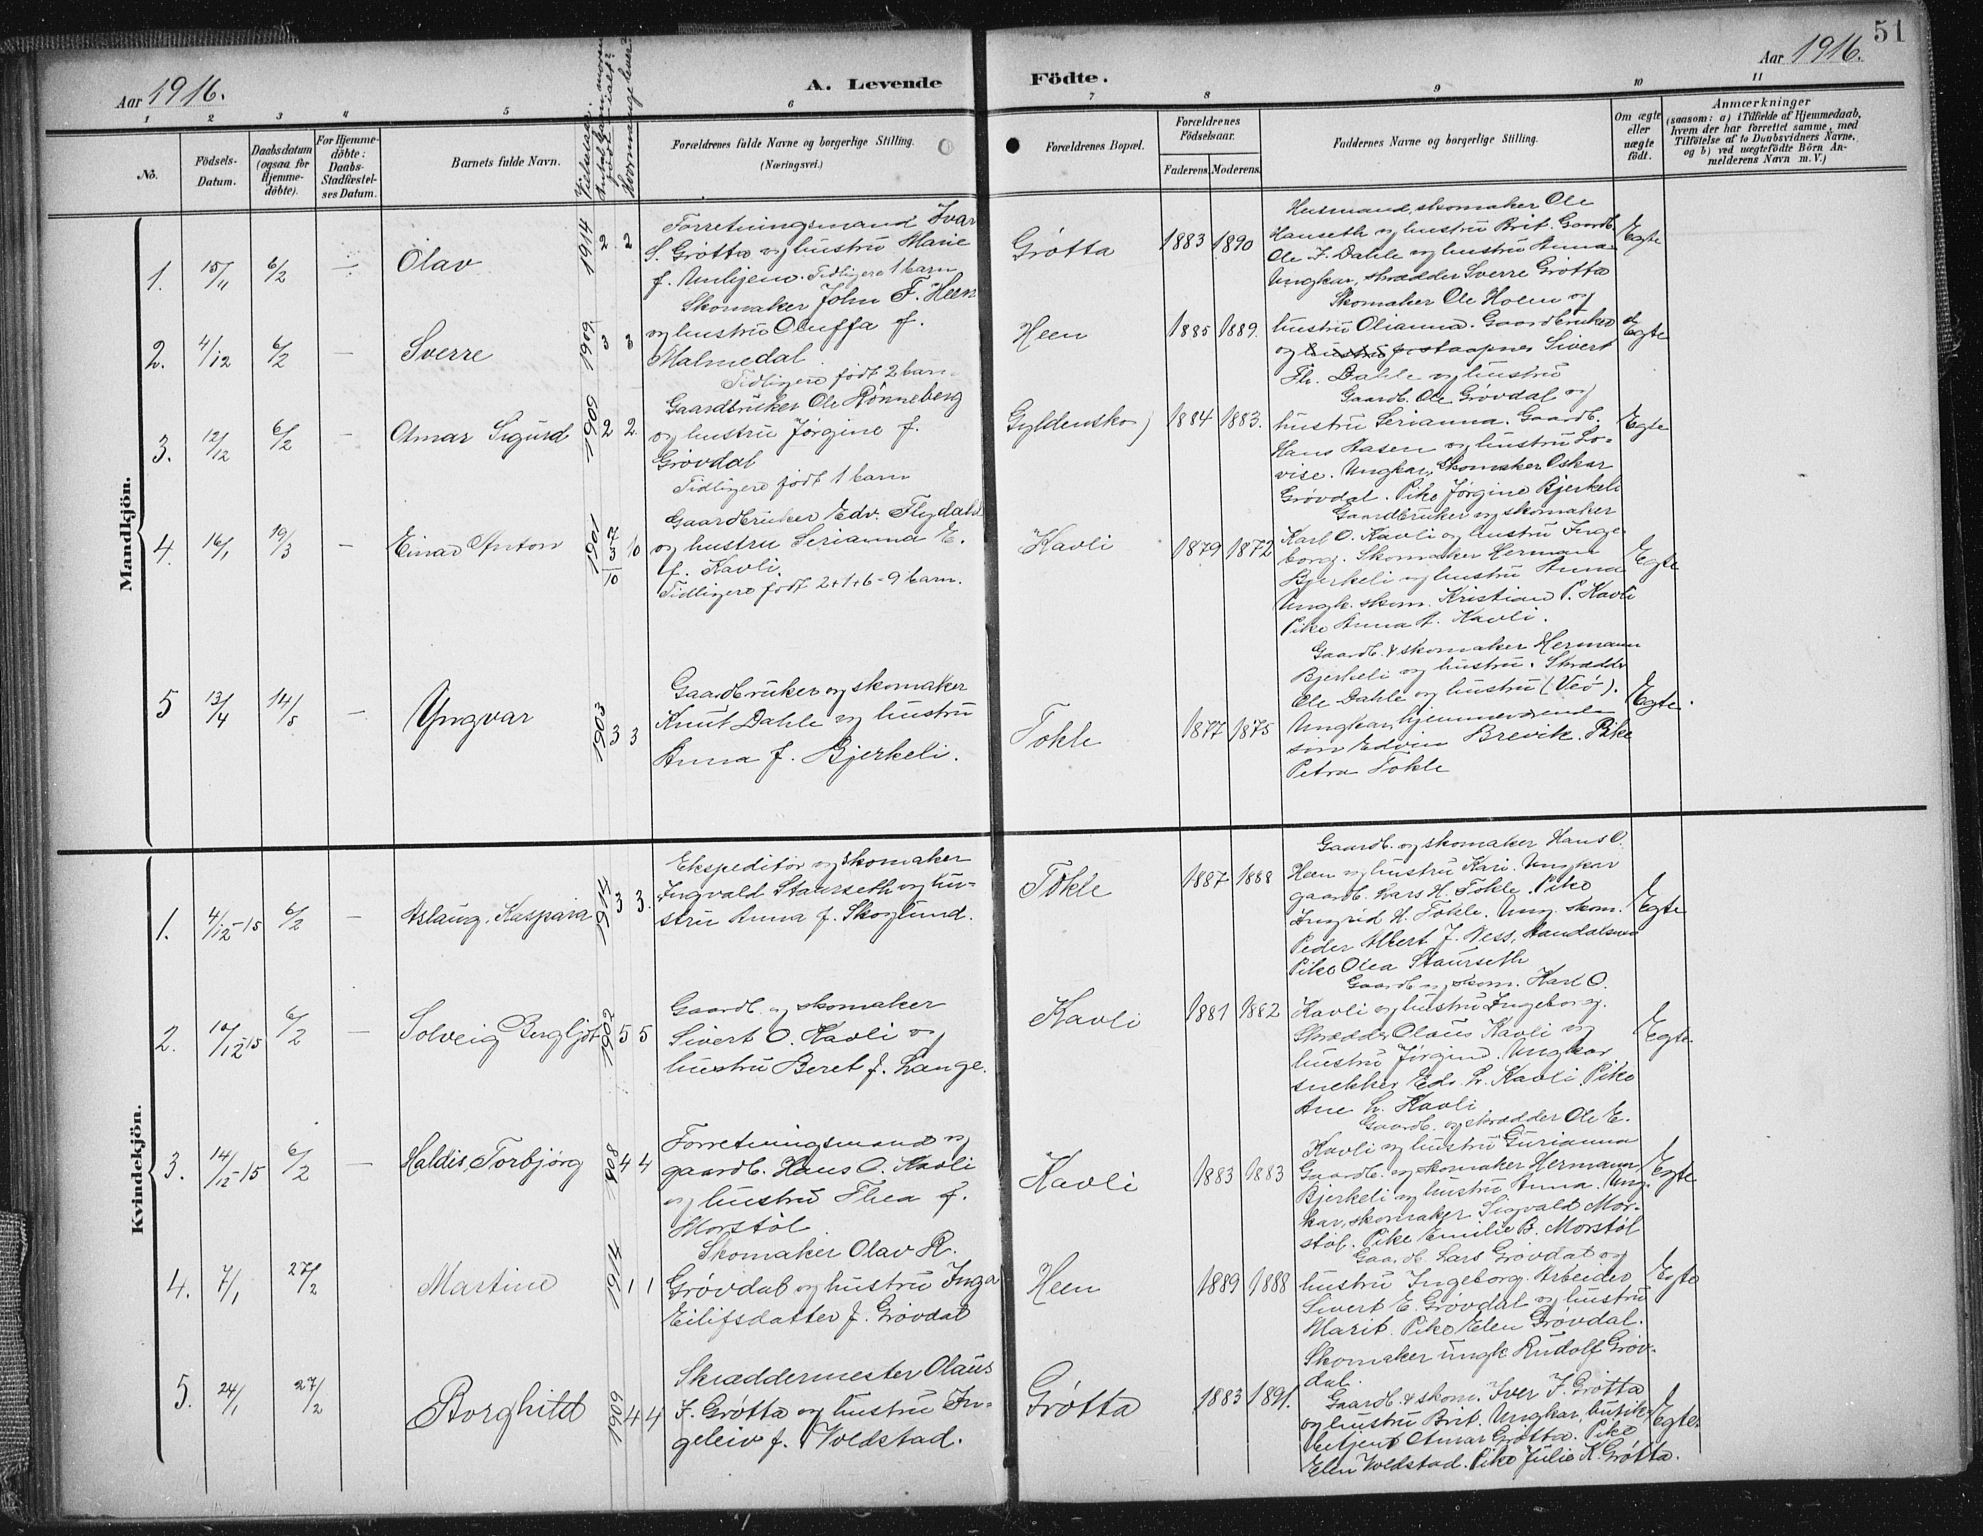 51
Aar 1916.
A. Levende
Födte.
Aar 1916.
1 2 3 4 5 6 7 8 9 10 11
No.
Födsels-
Datum.
Daabsdatum
(ogsaa for
Hjemme-
döbte).
For Hjemme-
döbte:
Daabs-
Stadfæstel-
ses Datum.
Barnets fulde Navn.
Vielsesaar.
Forældrenes fulde Navne og borgerlige Stilling.
(Næringsvei.)
Forældrenes Bopæl.
Forældrenes
Födselsaar.
Faderens. Moderens.
Faddernes Navne og borgerlige Stilling.
Om ægte
eller
uægte
födt.
Anmærkninger
(saasom: a) i Tilfælde af Hjemmedaab,
hvem der har forrettet samme, med
Tilföielse af to Daabsvidners Navne,
og b) ved uægtefödte Börn An-
melderens Navn m. V.)
Mandkjön.
1. 15/11 6/2 – Olav 1914 2 2
Forretningsmand Ivar
S. Grøtta og hustru Marie
f. Unhjem. Tidligere 1 barn
Grøtta 1883 1890
Husmand, skomaker Ole
Hanseth og hustru Brit. Gaardb.
Ole J. Dahle og hustru Anna.
Ungkar, skrædder Sverre Grøtta
Egte
2. 4/12 6/2 – Sverre 1909 3 3
Skomaker John F. Heen
og hustru Oluffa f.
Malmedal.
Tidligere født 2 barn.
Heen 1885 1889.
Skomaker Ole Holen og
hustru Olianna. Gaardbruker
og hustru postaapner Sivert
Th. Dahle og hustru
Egte
3. 12/12 6/2 – Otmar Sigurd 1909 2 2.
Gaardbruker Ole Rønneberg
og hustru Jørgine f.
Grövdal
Tidligere født 1 barn
Gyldenskog 1884 1883.
Gaardb. Ole Grövdal og
hustru Serianna. Gaardb.
Hans Aasen og hustru Lo-
vise. Ungkar, skomaker Oskar
Grøvdal. Pike Jørgine Bjerkeli
Egte
4. 16/1 19/3 – Einar Anton 1901 10
Gaardbruker Edv. Flydahl
og hustru Serianna E.
f. Kavli
Tidligere født 2+1+6=9 barn.
Kavli 1879 1872
Gaardbruker og skomaker
Karl O. Kavli og hustru Inge-
borg. Skomaker Herman
Bjerkeli og hustru Anna
Ungk. skom. Kristian P. Kavli
Pike Anna A. Kavli.
Egte
5 13/4 14/5 – Yngvar 1903 3 3
Gaardbruker og skomaker
Knut Dahle og hustru
Anna f. Bjerkeli.
Tokle 1877 1875
Gaardb. & skomaker Hermann
Bjerkeli og hustru. Skrædder
Ole Dahle og hustru (Veö).
Ungkar, hjemmeværende
søn Edvin Brevik. Pike
Petra Tokle
Egte.
Kvindekjön.
1. 4/12-15 6/2 – Aslaug. Kaspara 1914 3 3.
Ekspeditör og skomaker
Ingvald Staurseth og hu-
stru Anna f. Skoglund.
Tokle 1887 1888
Gaardb. og skomaker Hans O.
Heen og hustru Kari. Ungkar
gaardb. Lars H. Tokle. Pike
Ingrid H. Tokle. Ung. skom.
Peder Albert J. Ness,
Pike Olea Staurseth
Egte
2. 10/12-15 6/2 – Solveig Bergljot 1902 5 5
Gaardb. og skomaker
Sivert O. Kavli og
hustru Beret f. Lange.
Kavli 1881 1882
Gaardb. og skom. Karl O.
Kavli og hustru Ingeborg.
Skrædder Olaus Kavli og
hustru Jørgine. Ungkar
snekker Edv. L. Kavli. Pike
Ane L. Kavli
Egte.
3. 14/12-15 6/2 – Haldis, Torbjørg 1908 4 4
Forretningsmand og
gaardb. Hans O. Kavli
og hustru Thea f.
Morstöl.
Kavli 1883 1883
Gaardb. og skrædder Ole E.
Kavli og hustru Gurianna
Gaardb. og skomaker Hermann
Bjerkeli og hustru Anna. Ung-
kar, skomaker Sigvald Mor-
stöl. Pike Emilie B. Morstöl
Egte
4. 7/1 27/2 Martine 1914 1 1
Skomaker Olav R.
Grövdal og hustru Inga
Eilifsdatter f. Grövdal
Heen 1889 1888
Gaardb. Lars Grövdal og
hustru Ingeborg. Arbeider
Sivert E. Grøvdal og hustru
Marit. Pike Elen Grövdal.
Skomaker ungk Rudolf Gröv-
dal.
Egte
5. 24/1 27/2 Borghild 1909 4 4
Skræddermester Olaus
J. Grøtta og hustru In-
geleiv f. Voldstad.
Grøtta 1883 1891.
Gaardb. & skom. Iver J. Grøtta
og hustru Brit. Ungkar, butik-
betjent Otmar Grøtta. Pike
Elen Voldstad. Pike Julie K. Grøtta.
Egte